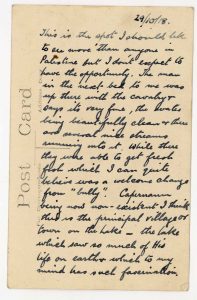 29/10/18.
This is the spot I should like
to see more than anyone in
Palestine but I don't expect to
have the opportunity. The man
in the next bed to me was
up there with the cavalry &
says its very fine, the water
being beautifully clean & there
are several nice streams
running into it. While there
they were able to get fresh
fish which I can quite
believe was a welcome change
from "bully". Capernaum
being now non-existent I think
this is the principal village or
town on the Lake — the lake
which saw so much of His
life on earth & which to my
mind has such fascination
Post Card